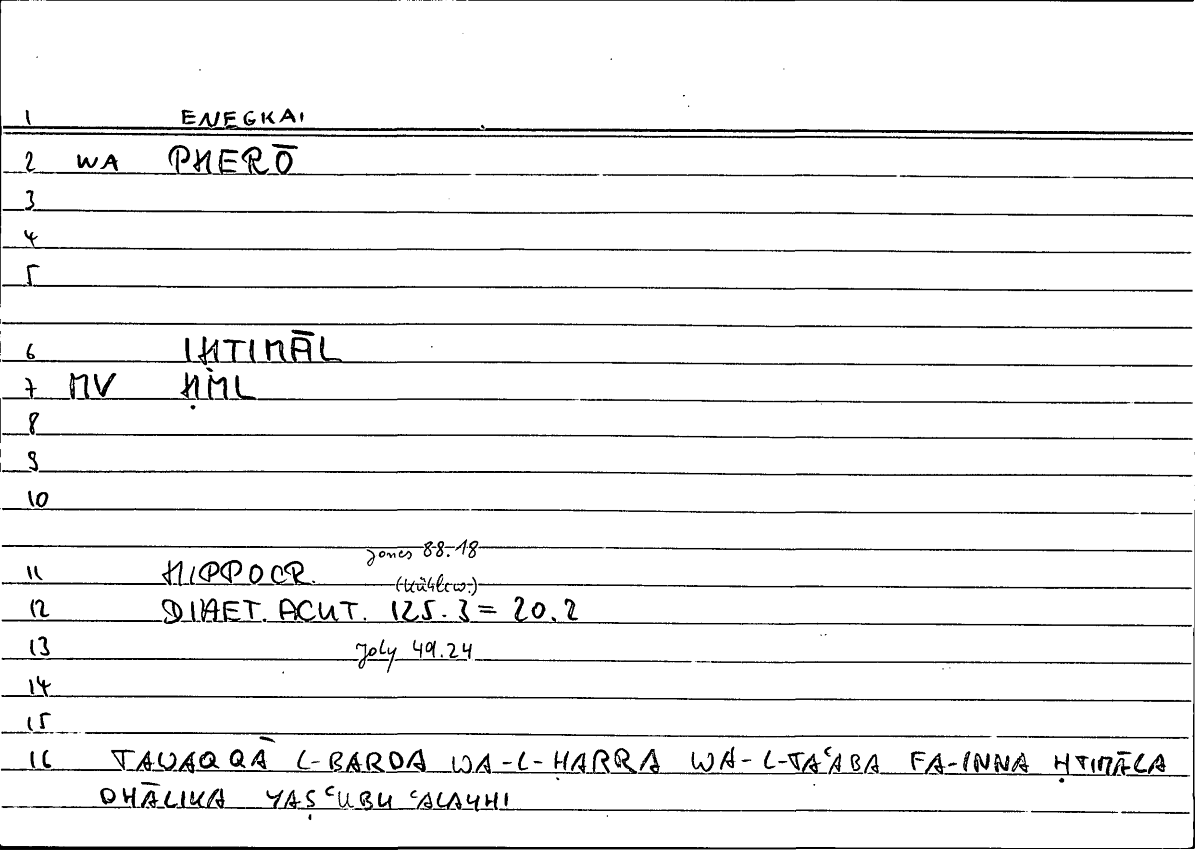 1 ENEGKAI
2 WA PHERŌ
3
4
5
6 IḤTIMĀL
7 MV ḤML
8
9
10
Jones 88.18
11 HIPPOCR.
(Kühlew.)
12 DIAET. ACUT. 125.3 = 20.2
13 Joly 49.24
14
15
16 TAWAQQĀ L-BARDA WA-L-ḤARRA WA-L-TAʿABA FA-INNA ḤTIMĀLA
DHĀLIKA YAṢʿUBU ʿALAYHI